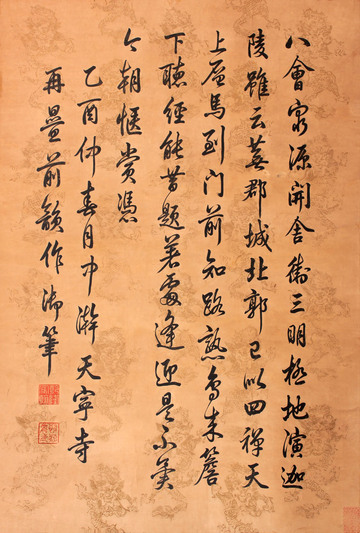 八會源開舍衛三明極地演迦
陵雖云蕪郡城北郭已似四禪天
上層馬到門前知路熟鳥來簷
下聽經能昔題著處逢迎是不
今朝愜賞憑
乙酉仲春月中澣天寧寺
再疊前韻作御筆